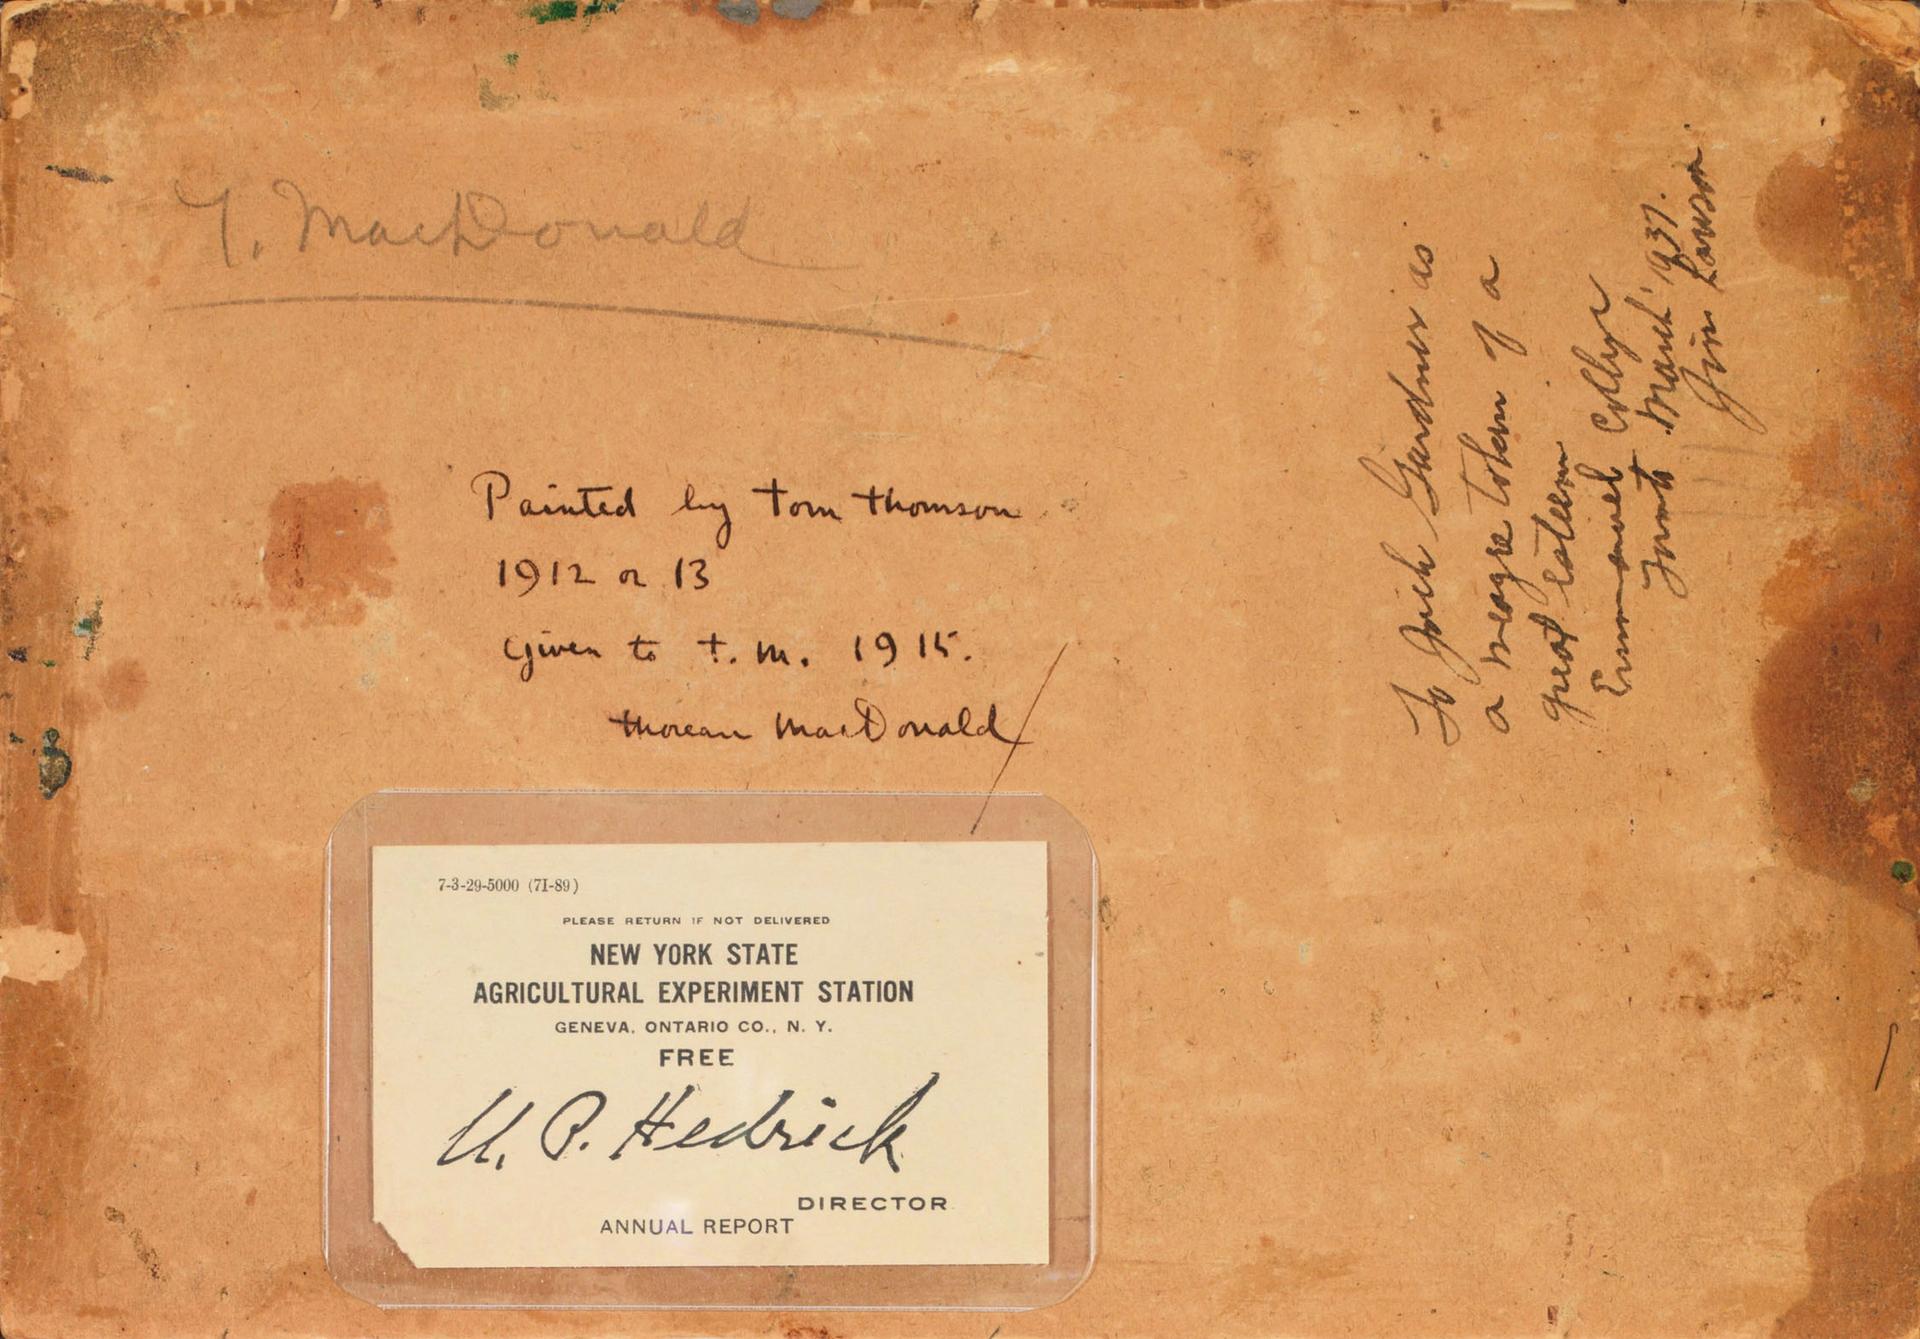 T. MacDonald
Painted by tom thomson
1912 or 13
Given to t.m. 1915.
thoreau MacDonald
7-3-29-5000 (7I-89)
PLEASE RETURN IF NOT DELIVERED
NEW YORK STATE
AGRICULTURAL EXPERIMENT STATION
GENEVA, ONTARIO CO., N. Y.
FREE
U. P. Hedrick
DIRECTOR
ANNUAL REPORT
To Gardner as
a meagre token of a
great esteem
Emmanuel College
Toronto March 1937.
Jim Lawson